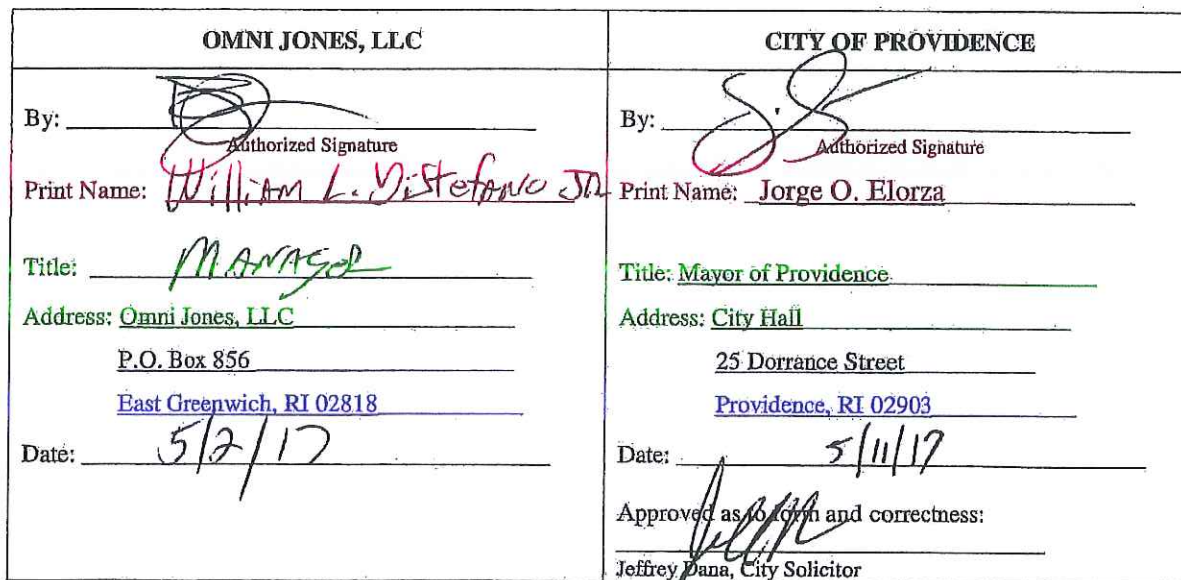 OMNI JONES, LLC
By:
Authorized Signature
Print Name: William L. DiStefano JR
Title: MANAGER
Address: Omni Jones, LLC
P.O. Box 856
East Greenwich, RI 02818
Date: 5/2/17
CITY OF PROVIDENCE
By:
Authorized Signature
Print Name: Jorge O. Elorza
Title: Mayor of Providence
Address: City Hall
25 Dorrance Street
Providence, RI 02903
Date: 5/11/17
Approved as to form and correctness:
Jeffrey Dana, City Solicitor